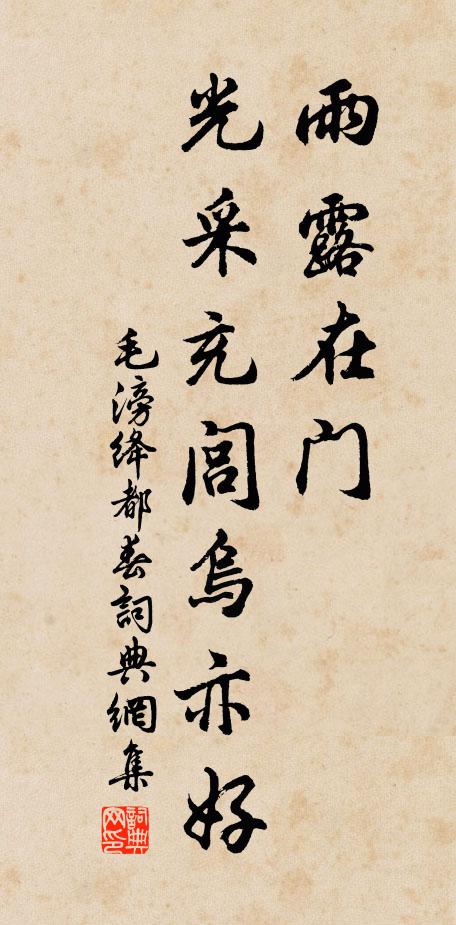 雨露在门
光采充闾乌亦好
毛滂绛都春詞典網集
詞典网印